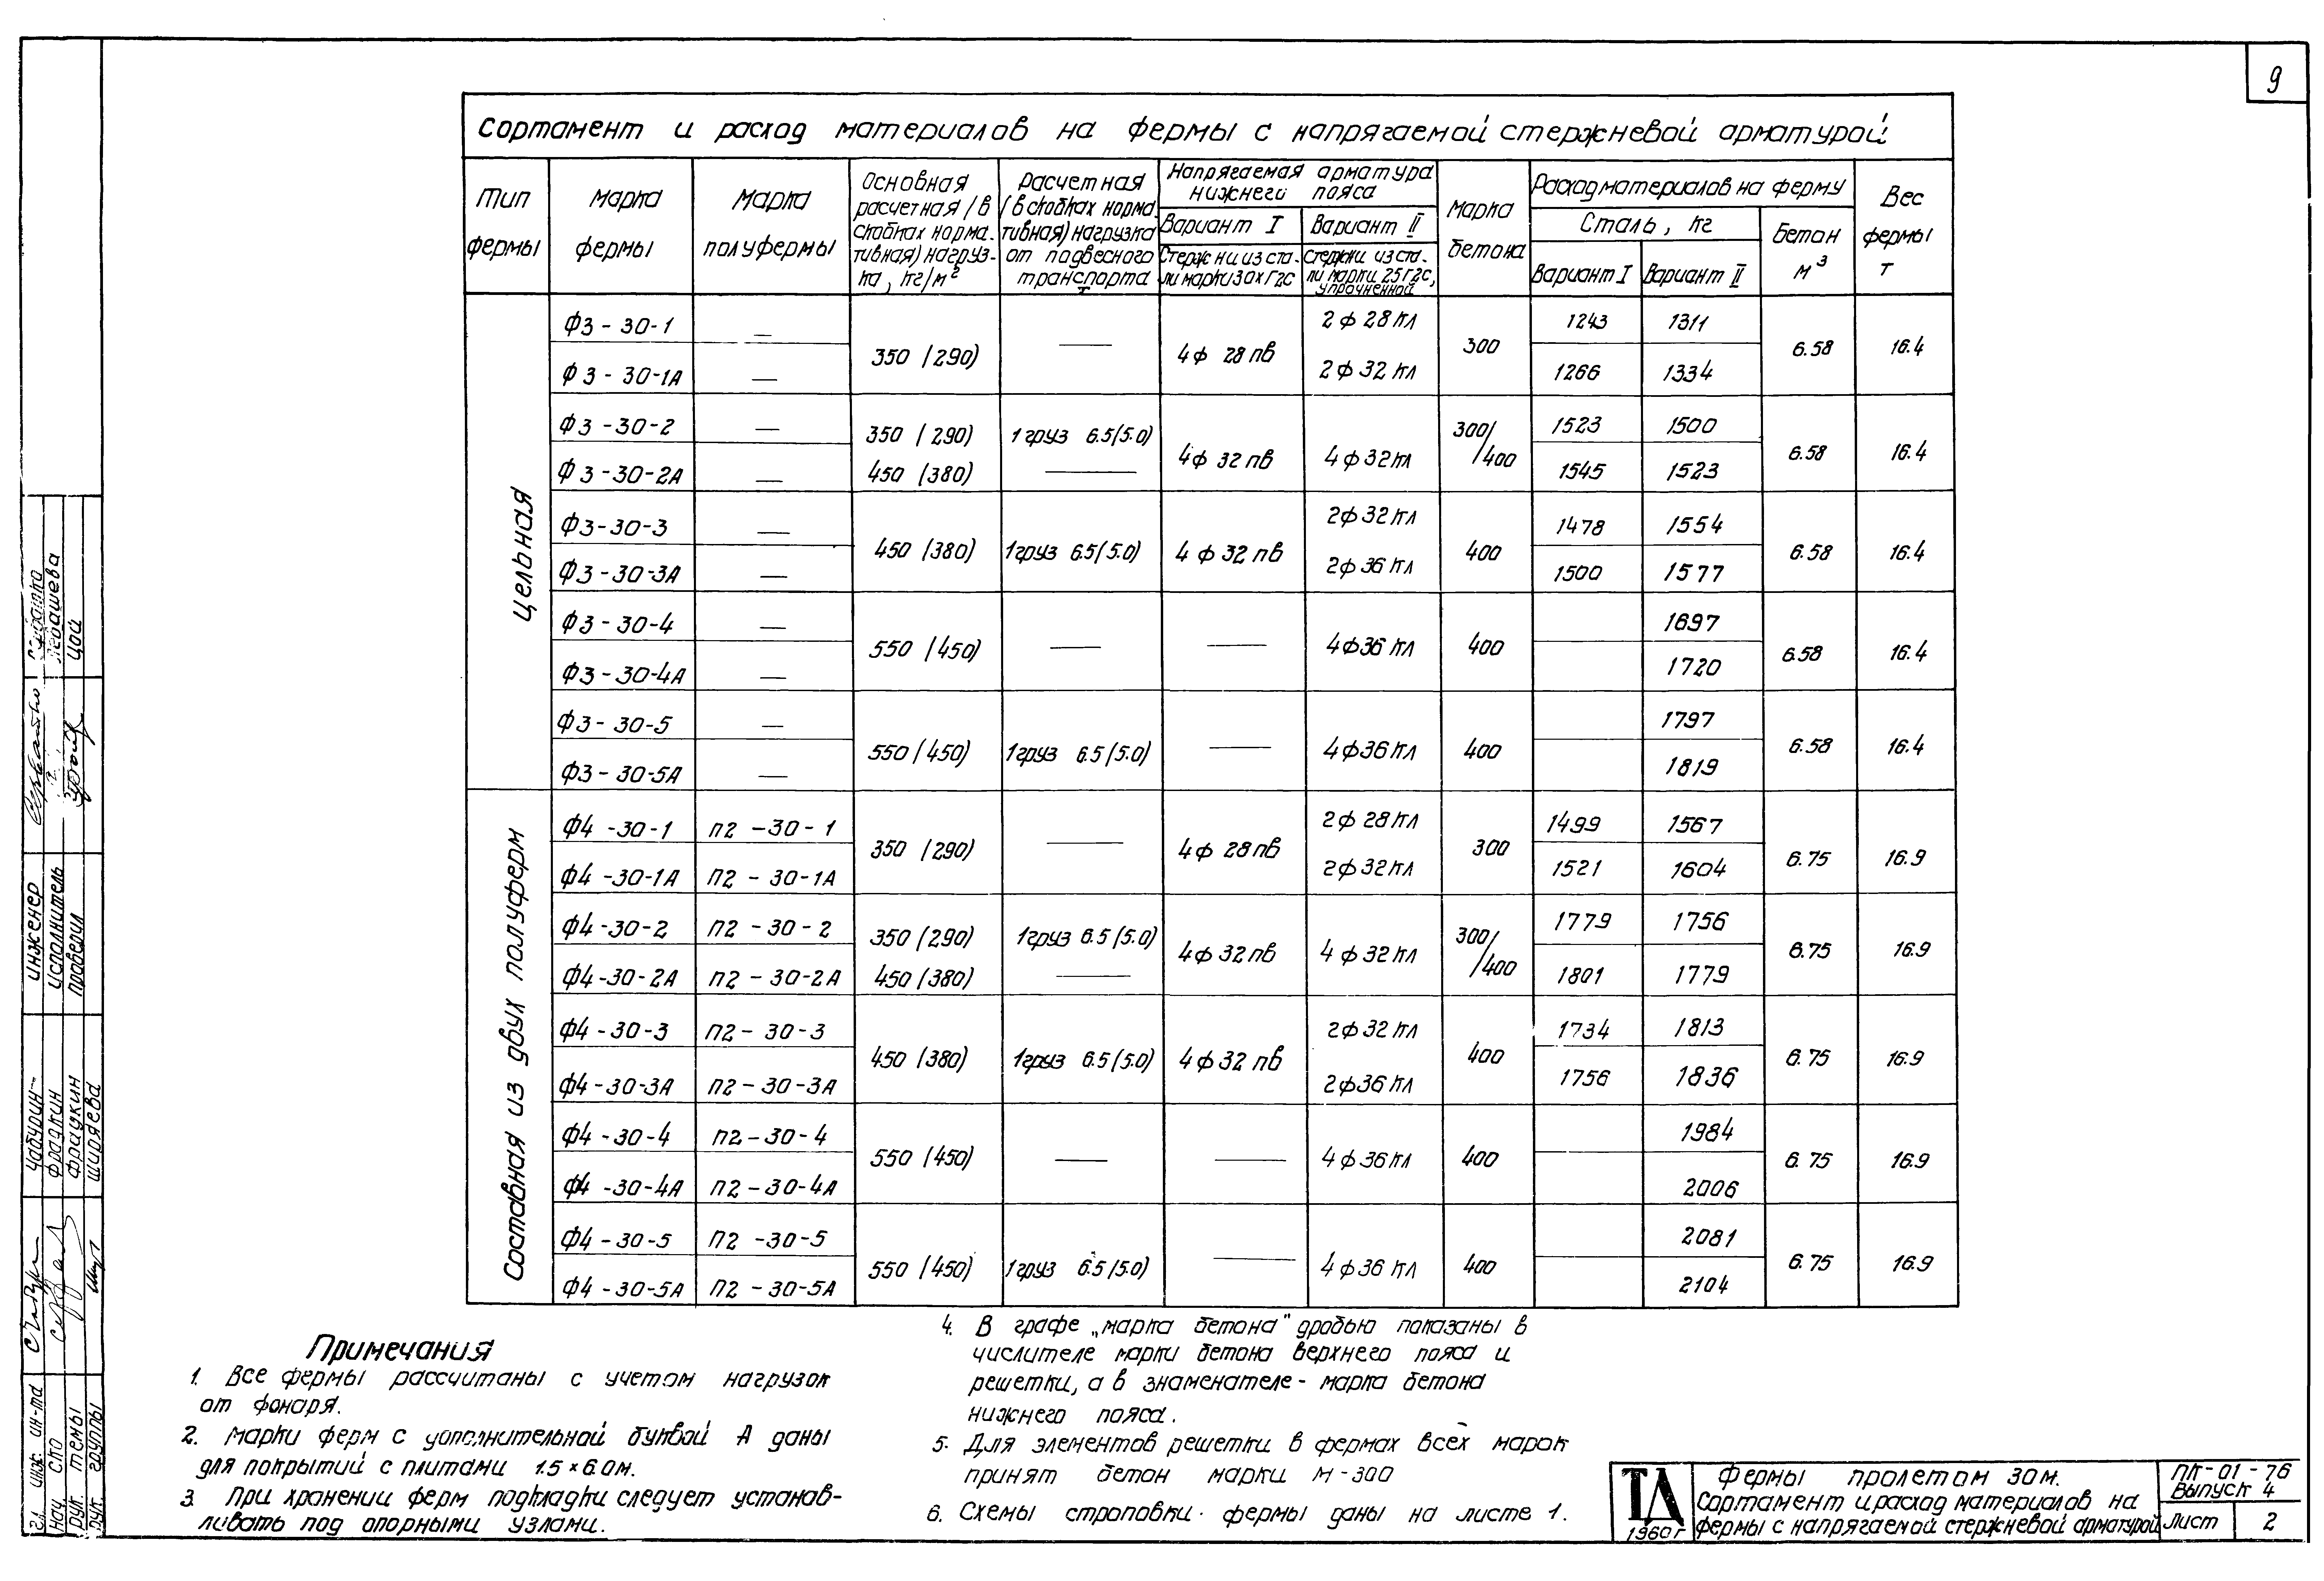 9
Сортамент и расход материалов на фермы с напрягаемой стержневой арматурой
Тип фермы
Марка фермы
Марка полуфермы
Основная расчетная (в скобках норма-тивная) нагруз-ка, кг/м²
Расчетная (в скобках норма-тивная) нагрузка от подвесного транспорта т
Напрягаемая арматура нижнего пояса
Вариант I
Вариант II
Стержни из ста-ли марки 30хГ2С
Стержни из ста-ли марки 25Г2С, упрочненной
Марка бетона
Расход материалов на ферму
Сталь, кг
Вариант I
Вариант II
Бетон м³
Вес фермы т
Цельная
Ф3-30-1 — 350 (290) — 4ф 28пв 2ф 28кл 300 1243 1311 6.58 16.4
Ф3-30-1А — 2ф 32кл 1266 1334
Ф3-30-2 — 350 (290) 1груз 6.5(5.0) 4ф 32пв 4ф 32кл 300/400 1523 1500 6.58 16.4
Ф3-30-2А — 450 (380) — 1545 1523
Ф3-30-3 — 450 (380) 1груз 6.5(5.0) 4ф 32пв 2ф32кл 400 1478 1554 6.58 16.4
Ф3-30-3А — 2ф36кл 1500 1577
Ф3-30-4 — 550 (450) — — 4ф36кл 400 1697 6.58 16.4
Ф3-30-4А — 1720
Ф3-30-5 — 550 (450) 1груз 6.5(5.0) — 4ф36кл 400 1797 6.58 16.4
Ф3-30-5А — 1819
Составная из двух полуферм
Ф4-30-1 П2-30-1 350 (290) — 4ф 28пв 2ф 28кл 300 1499 1567 6.75 16.9
Ф4-30-1А П2-30-1А 2ф32кл 1521 1604
Ф4-30-2 П2-30-2 350 (290) 1груз 6.5(5.0) 4ф 32пв 4ф 32кл 300/400 1779 1756 6.75 16.9
Ф4-30-2А П2-30-2А 450 (380) — 1801 1779
Ф4-30-3 П2-30-3 450 (380) 1груз 6.5(5.0) 4ф 32пв 2ф32кл 400 1734 1813 6.75 16.9
Ф4-30-3А П2-30-3А 2ф36кл 1756 1836
Ф4-30-4 П2-30-4 550 (450) — — 4ф36кл 400 1984 6.75 16.9
Ф4-30-4А П2-30-4А 2006
Ф4-30-5 П2-30-5 550 (450) 1груз 6.5(5.0) — 4ф36кл 400 2081 6.75 16.9
Ф4-30-5А П2-30-5А 2104
Примечания
1. Все фермы рассчитаны с учетом нагрузок
от фонаря.
2. Марки ферм с дополнительной буквой А даны
для покрытий с плитами 1.5×6.0м.
3. При хранении ферм подкладки следует устанав-
ливать под опорными узлами.
4. В графе „марка бетона" дробью показаны в
числителе марки бетона верхнего пояса и
решетки, а в знаменателе - марка бетона
нижнего пояса.
5. Для элементов решетки в фермах всех марок
принят бетон марки М-300
6. Схемы строповки фермы даны на листе 1.
ТД
1960г
Фермы пролетом 30м.
Сортамент и расход материалов на
фермы с напрягаемой стержневой арматурой
ПК-01-76
Выпуск 4
Лист 2
Гл. инж. ин-та
Нач. СКО
Рук. темы
Рук. группы
Чабурин
Фрадкин
Фрадкин
Ширяева
Инженер
Исполнитель
Проверил
Левашева
Цой